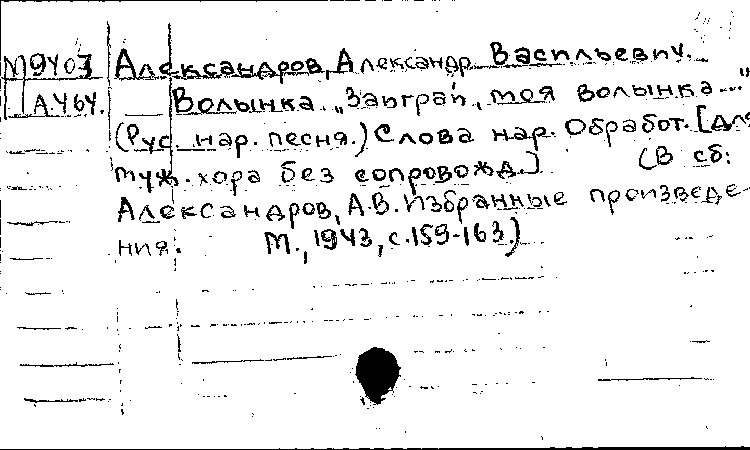 М9403 Александров, Александр Васильевич.
А.464. Волынка. „Заиграй, моя волынка..."
(Рус. нар. песня.) Слова нар. Обработ. [для
муж. хора без сопровожд.] (В сб:
Александров, А.В. Избранные произведе-
ния. М., 1943, с.159-163.)